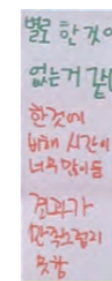 별로 한것이
없는거 같
한것에
비해 시간이
너무 많이듦
결과가
만족스럽지
못함